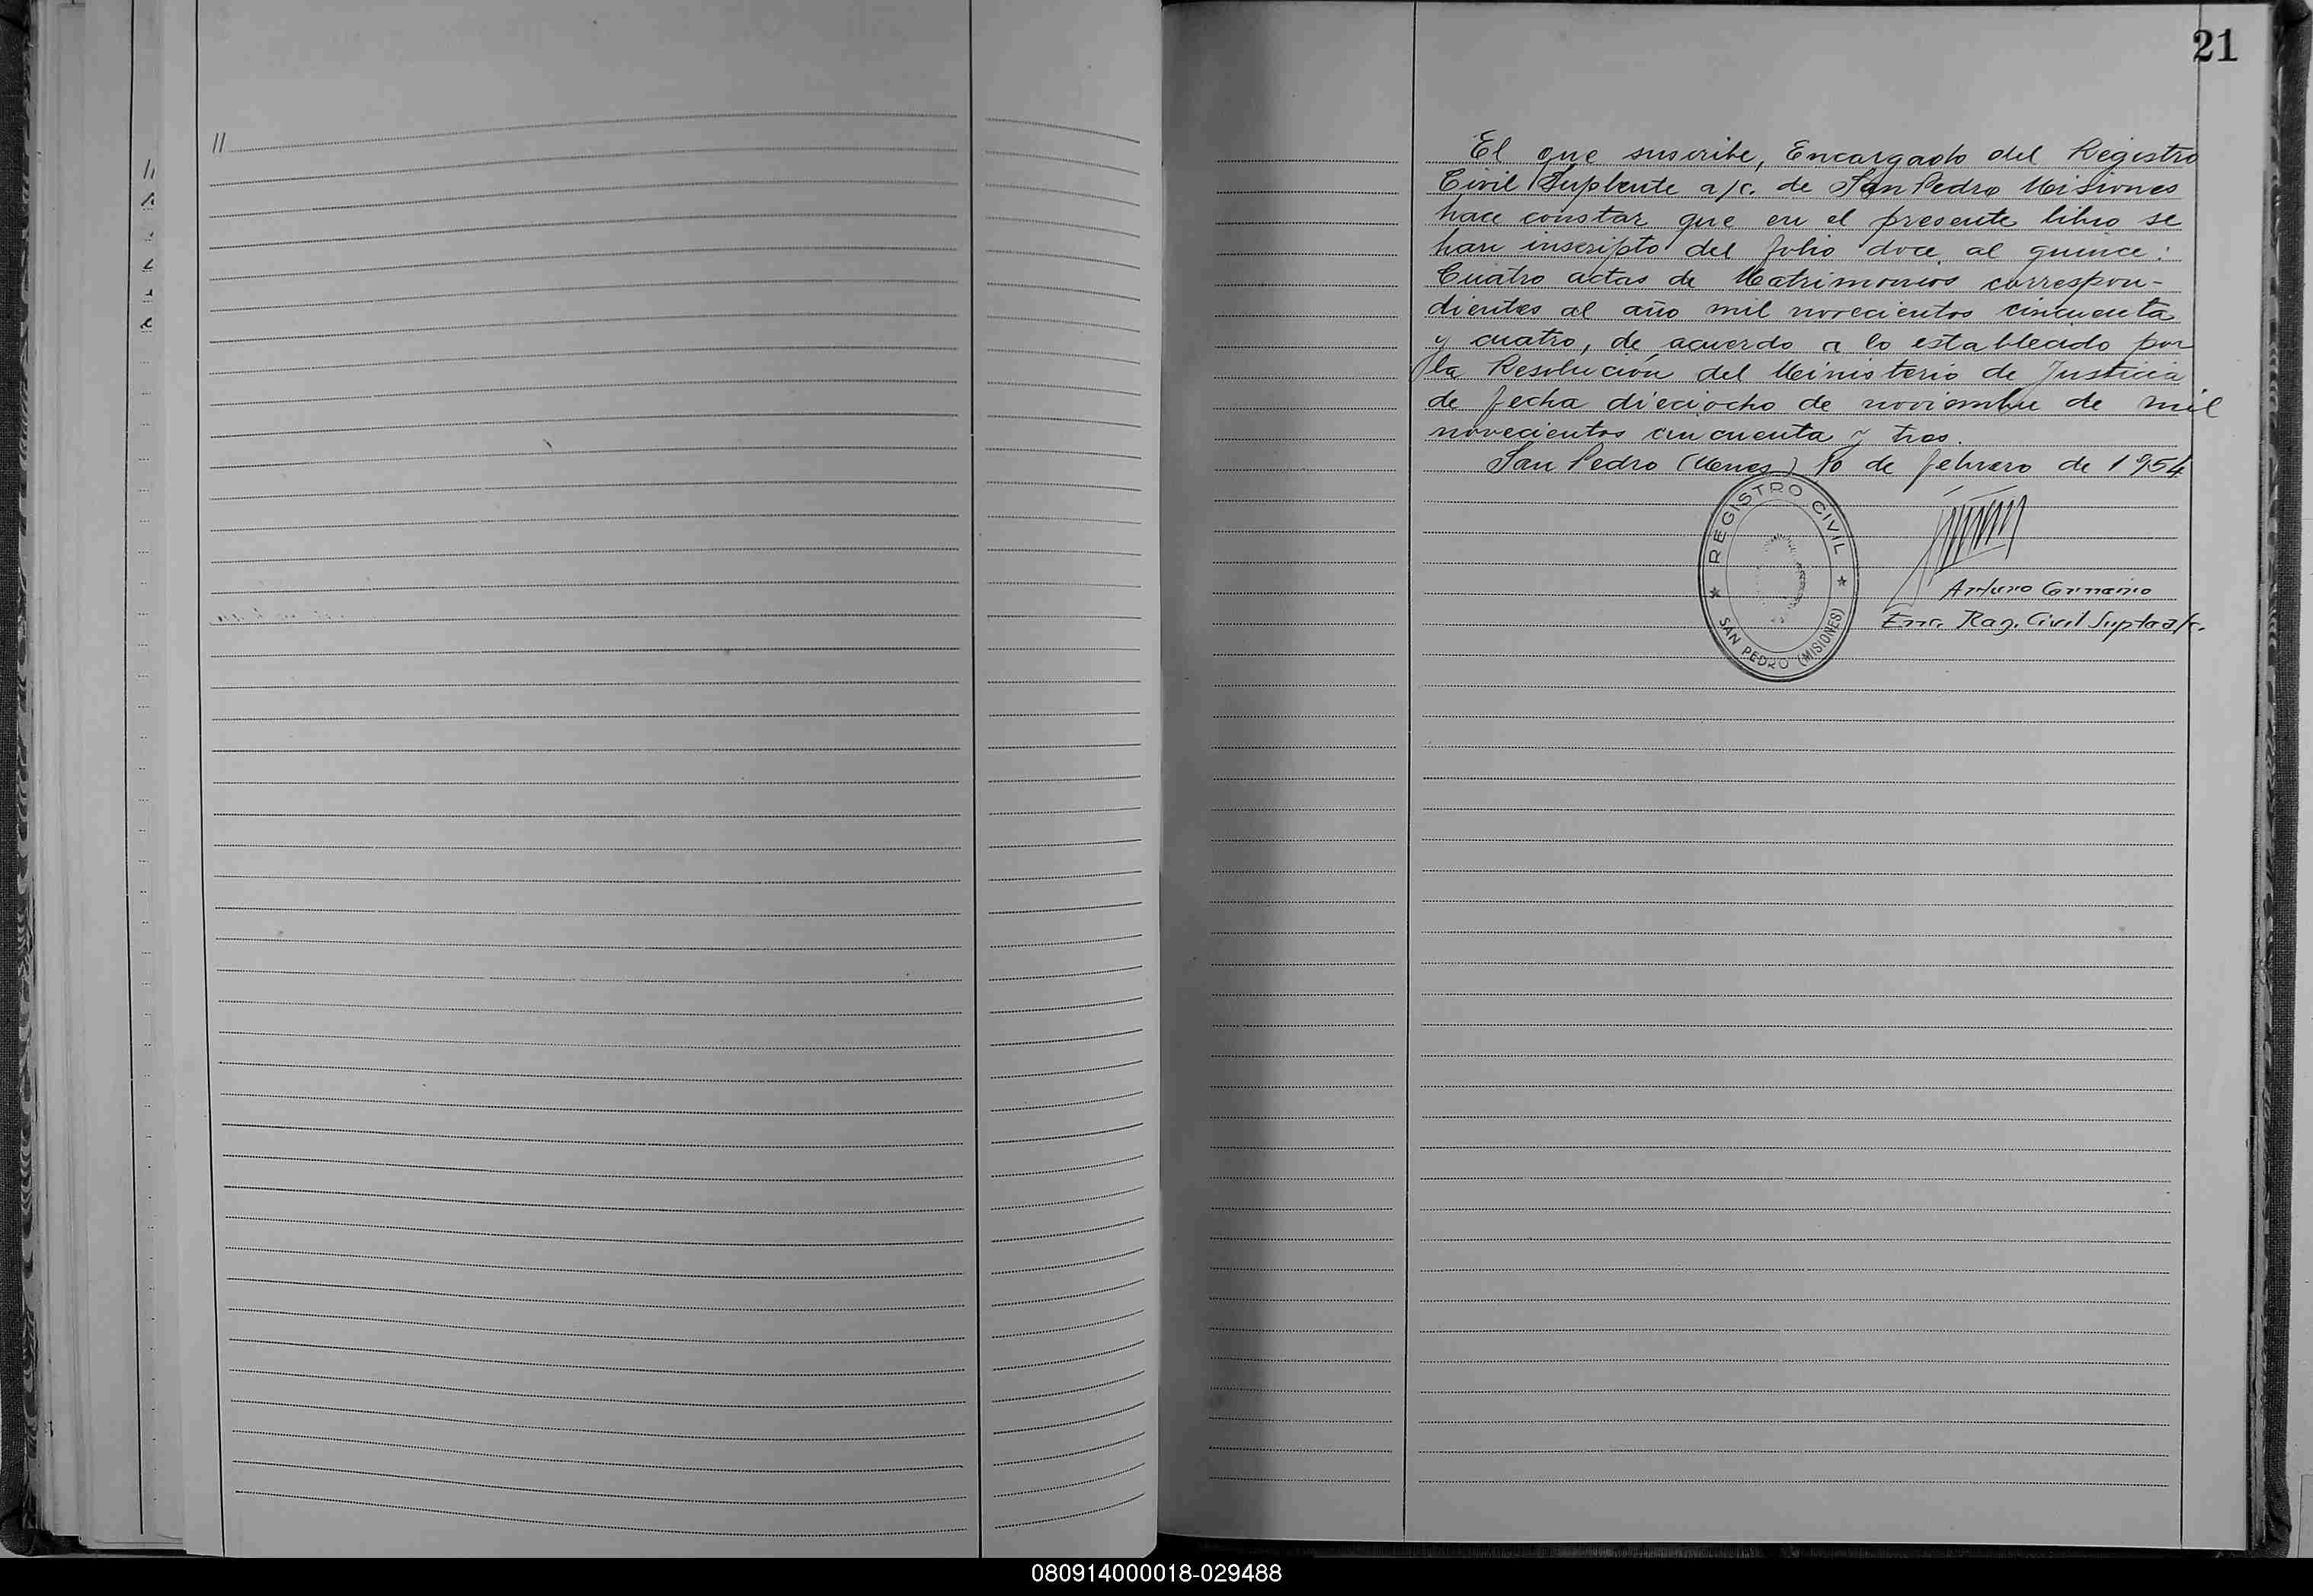 21
El que suscribe, Encargado del Registro
Civil Suplente a/c. de San Pedro Misiones
hace constar que en el presente libro se
han inscripto del folio doce al quince:
Cuatro actas de Matrimonios correspon-
dientes al año mil novecientos cincuenta
y cuatro, de acuerdo a lo establecido por
la Resolución del Ministerio de Justicia
de fecha dieciocho de noviembre de mil
novecientos cincuenta y tres.
San Pedro (Mnes) 10 de febrero de 1954
REGISTRO CIVIL
SAN PEDRO (MISIONES)
Arturo
Enc. Reg. Civil Supte a/c.
080914000018-029488